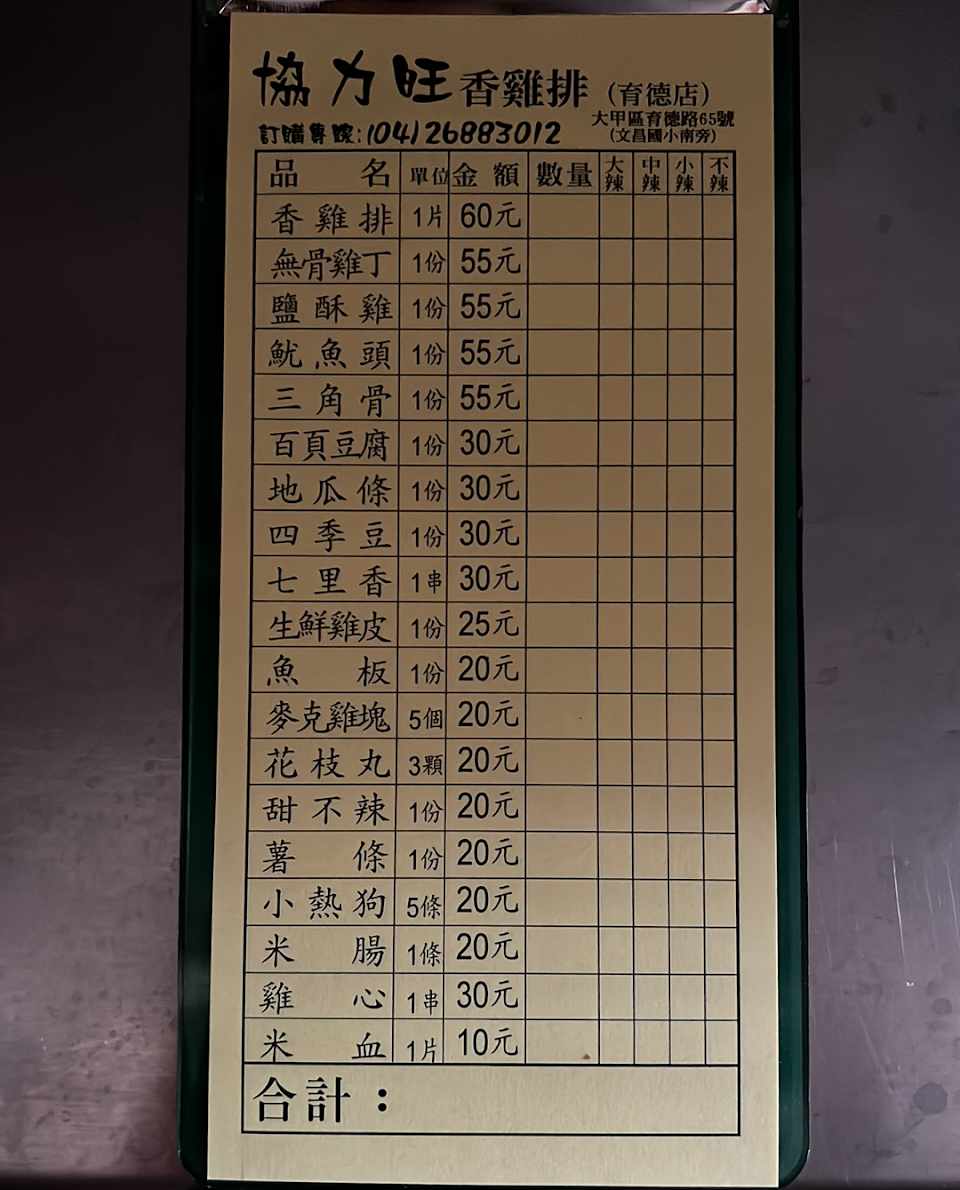 協力旺香雞排(育德店)
大甲區育德路65號
訂購專線:(04)26883012 (文昌國小南旁)
品名 單位 金額 數量 大辣 中辣 小辣 不辣
香雞排 1片 60元
無骨雞丁 1份 55元
鹽酥雞 1份 55元
魷魚頭 1份 55元
三角骨 1份 55元
百頁豆腐 1份 30元
地瓜條 1份 30元
四季豆 1份 30元
七里香 1串 30元
生鮮雞皮 1份 25元
魚板 1份 20元
麥克雞塊 5個 20元
花枝丸 3顆 20元
甜不辣 1份 20元
薯條 1份 20元
小熱狗 5條 20元
米腸 1條 20元
雞心 1串 30元
米血 1片 10元
合計：